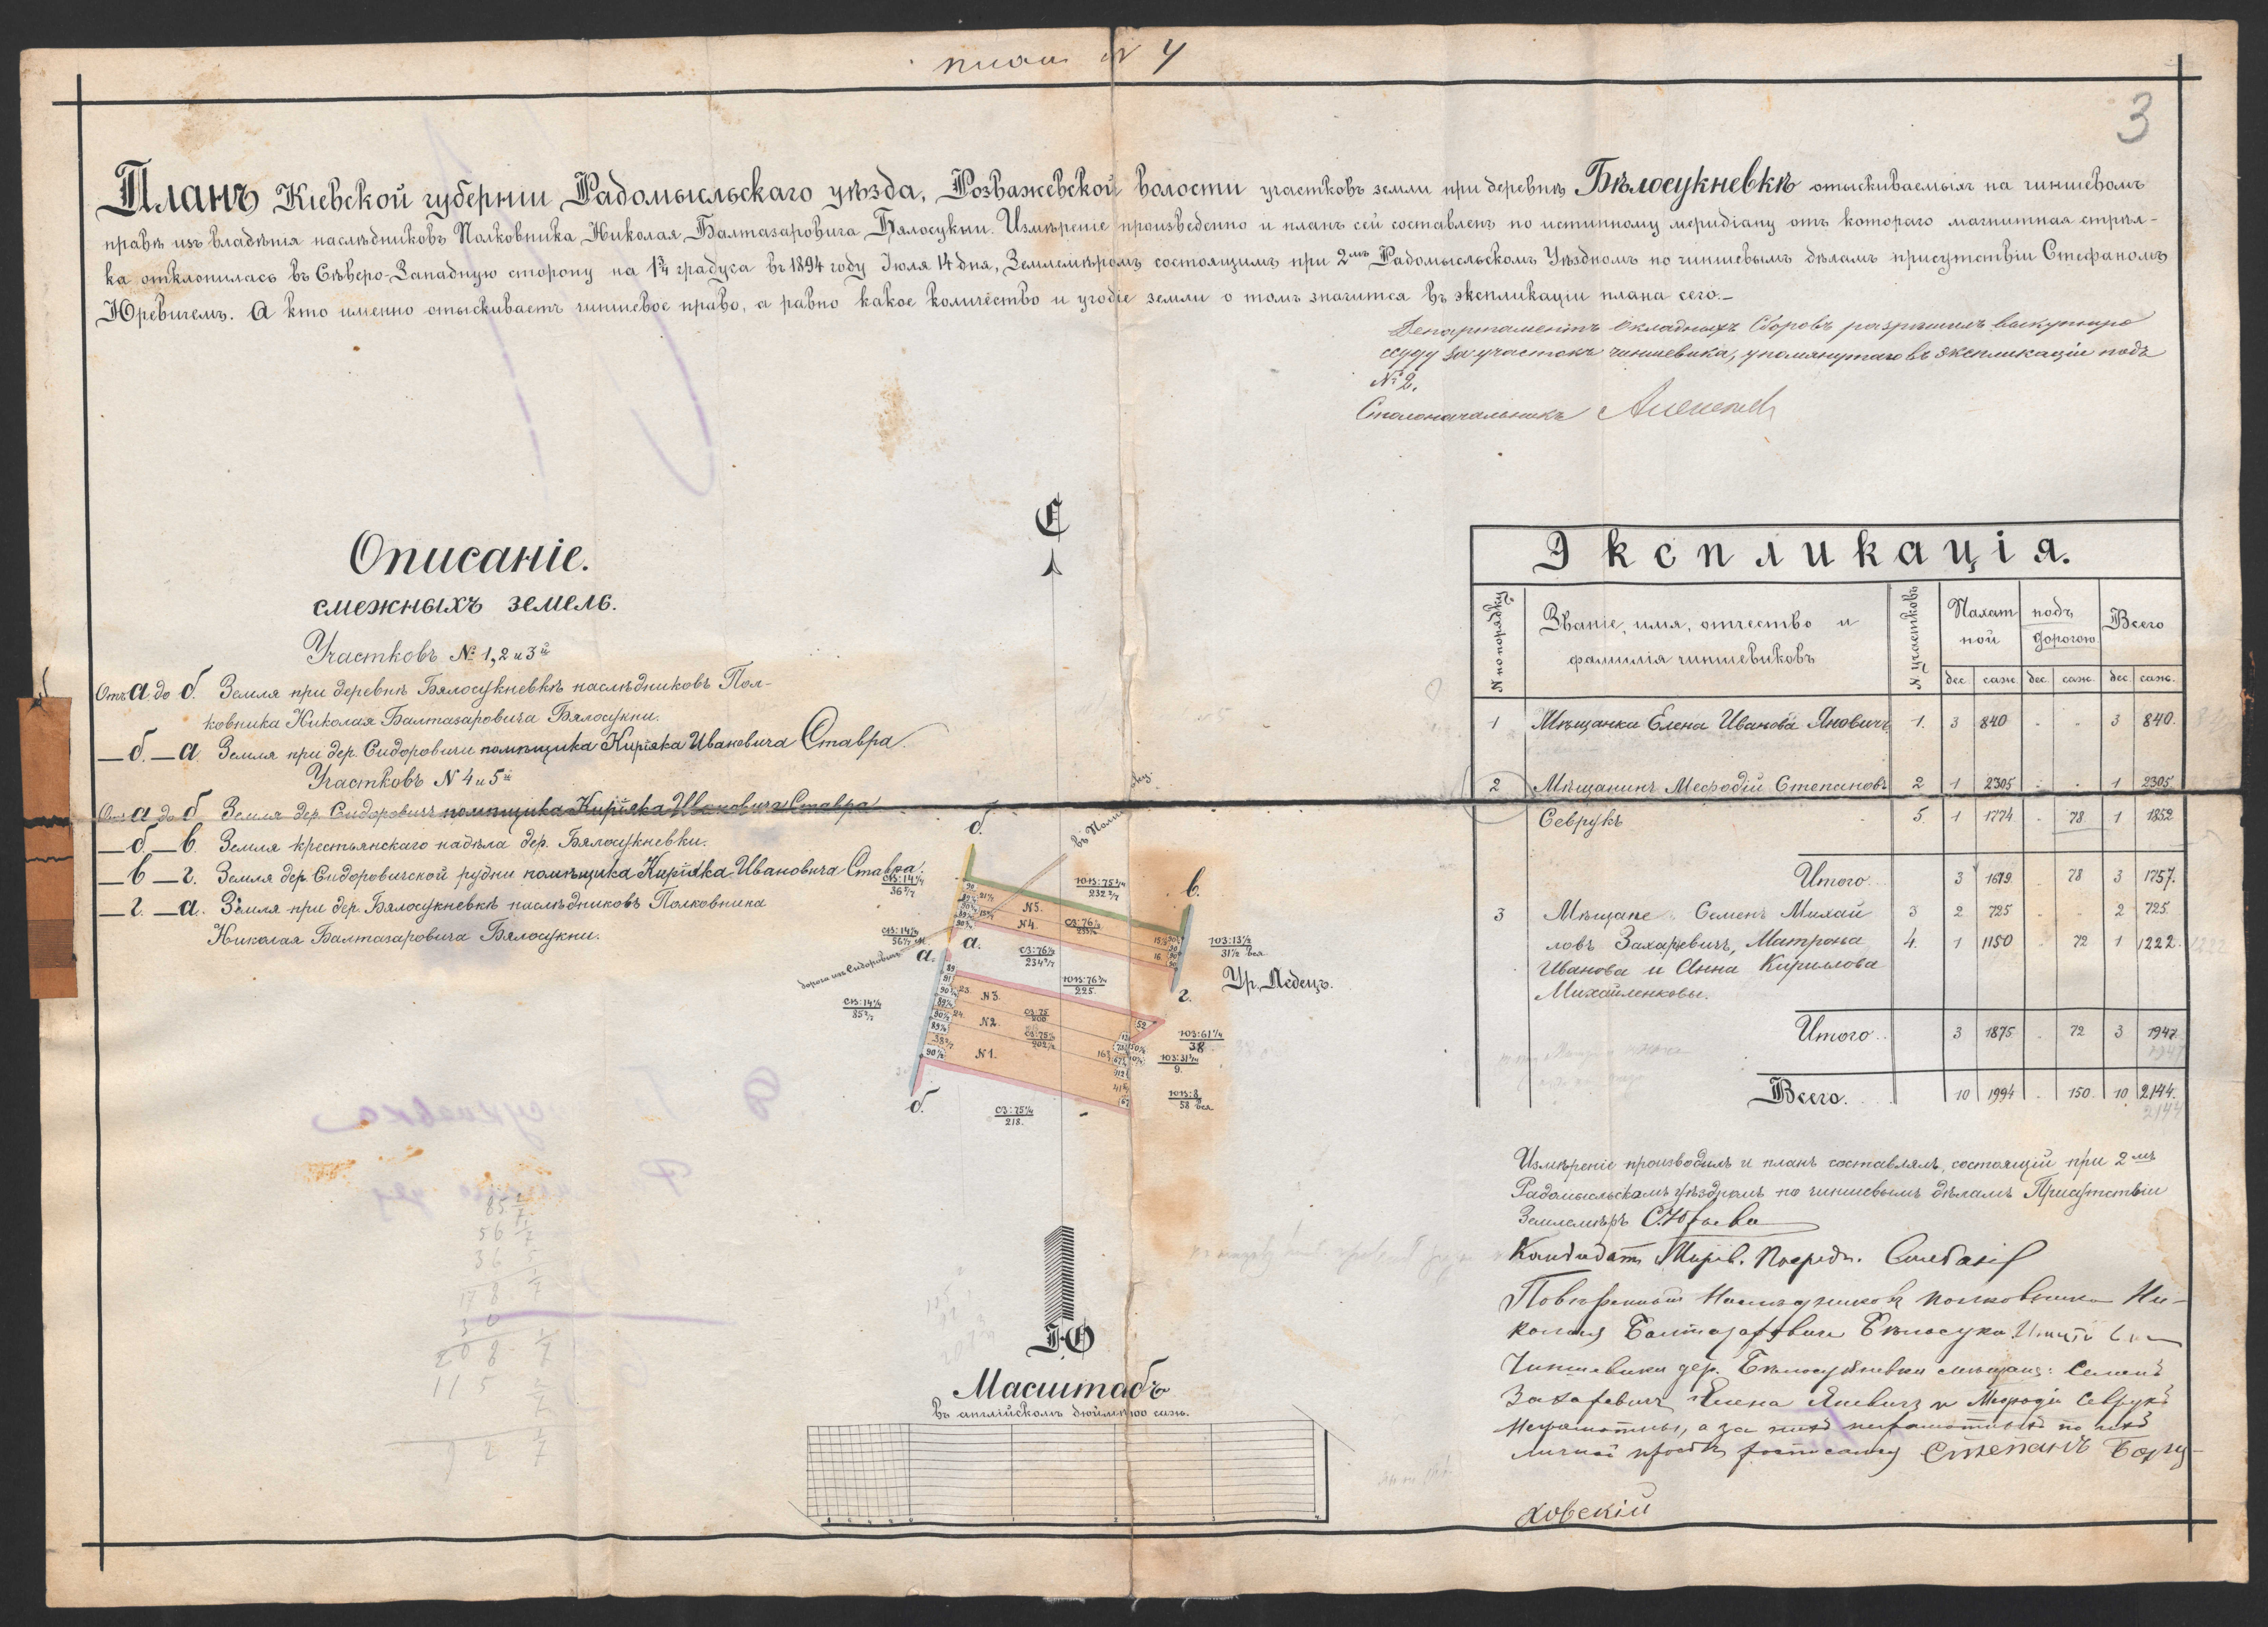 планъ N 4
3
Планъ Кіевской губерніи Радомысльскаго уѣзда, Розважевской волости участковъ земли при деревнѣ Бѣлосукневкѣ отыскиваемыхъ на чиншевомъ
правѣ изъ владѣнія наслѣдниковъ Полковника Николая Балтазаровича Бялосукни. Измѣреніе произведенно и планъ сей составленъ по истинному меридіану отъ котораго магнитная стрѣл-
ка отклонилась въ Сѣверо-Западную сторону на 1¾ градуса въ 1894 году Іюля 14 дня, Землемѣромъ состоящимъ при 2мъ Радомысльскомъ Уѣздномъ по чиншевымъ дѣламъ присутствіи Стефаномъ
Юревичемъ. А кто именно отыскиваетъ чиншевое право, а равно какое количество и угодіе земли о томъ значится въ экспликаціи плана сего.
Департаментъ Окладныхъ Сборовъ разрѣшилъ выкупную
ссуду за участокъ чиншевика, упомянутаго въ экспликаціи подъ
№ 2.
Столоначальникъ
С
Описаніе.
смежныхъ земель.
Участковъ № 1, 2 и 3й
Отъ а до б. Земля при деревнѣ Бялосукневкѣ наслѣдниковъ Пол-
ковника Николая Балтазаровича Бялосукни.
— б. — а. Земля при дер. Сидоровичи помѣщика Киріяка Ивановича Ставра.
Участковъ N 4 и 5й
Отъ а до б. Земля дер. Сидоровичъ помѣщика Киріяка Ивановича Ставра
— б. — в. Земля крестьянскаго надѣла дер. Бялосукневки.
— в — г. Земля дер. Сидоровичской рудни помѣщика Киріяка Ивановича Ставра.
— г. — а. Земля при дер. Бялосукневкѣ наслѣдниковъ Полковника
Николая Балтазаровича Бялосукни.
Экспликація.
N по порядку
Званіе, имя, отчество и
фамилія чиншевиковъ
N участковъ
Пахат
ной
подъ
дорогою
Всего
дес. саж. дес. саж. дес. саж.
1 Мѣщанка Елена Иванова Яновичъ 1. 3 840 . . 3 840.
2 Мѣщанинъ Мефодій Степановъ 2 1 2305 . . 1 2305
Севрукъ 5. 1 1774 . 78 1 1852
Итого 3 1679 . 78 3 1757.
3 Мѣщане Семенъ Михай 3 2 725 . . 2 725.
ловъ Захаревичъ, Матрона 4. 1 1150 . 72 1 1222.
Иванова и Анна Кириллова
Михайленковы.
Итого 3 1875 . 72 3 1947.
Всего. 10 1994 . 150. 10 2144.
б.
въ
в.
N5.
N4.
а.
а.
дорога изъ Сидоровичъ
Ур. Ледецъ.
г.
N3.
N2.
N1.
б.
ЮВ: 75¼
СЗ: 76¼
234
ЮВ: 76¼
225.
СЗ: 75
200
СЗ: 75¼
218.
ЮЗ: 13½
31½
ЮЗ: 61¼
38
ЮЗ: 31¼
9.
ЮВ: 8
58
Ю
Масштабъ
въ англійскомъ дюймѣ 100 саж.
Измѣреніе производилъ и планъ составлялъ, состоящій при 2мъ
Радомысльскомъ уѣздномъ по чиншевымъ дѣламъ Присутствіи
Землемѣръ С.
Кандидатъ Миров. Посред.
Повѣренный Наслѣдниковъ полковника Ни-
колая Балтазаровича
Чиншевики дер. Бѣлосукневки мѣщане: Семенъ
Захаревичъ Елена Яновичъ и Мефодій Севрукъ
неграмотны, а за нихъ неграмотныхъ по ихъ
личной просьбѣ росписался Степанъ
ховскій